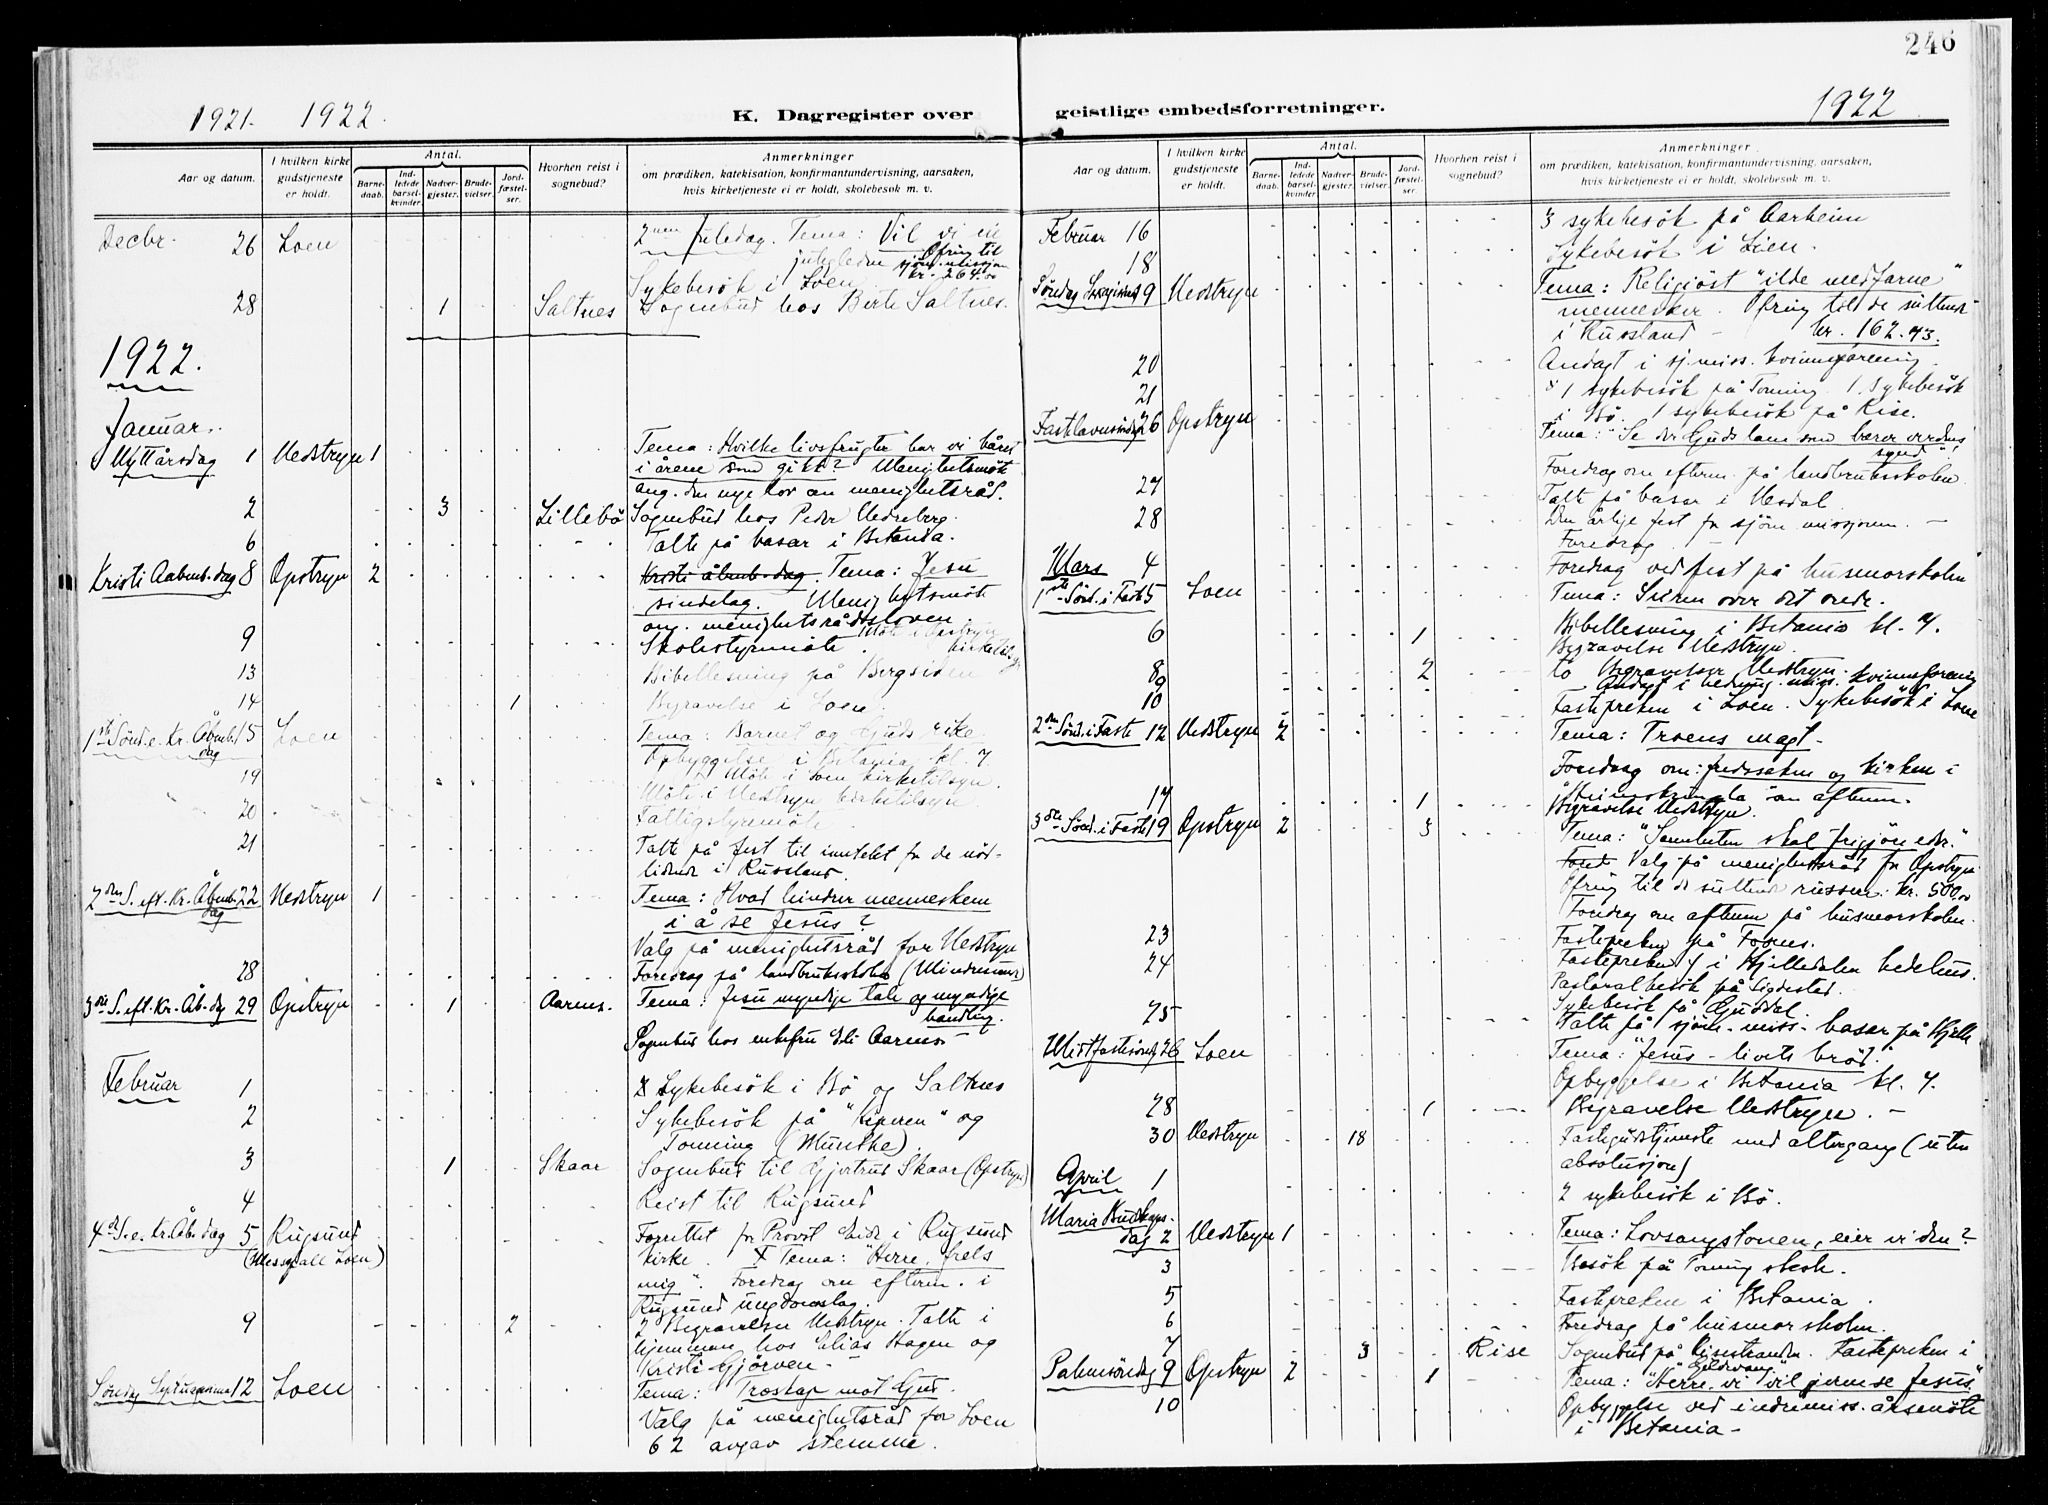 246
1921. 1922.
K. Dagregister over geistlige embedsforretninger.
1922
Aar og datum.
I hvilken kirke gudstjeneste er holdt.
Antal.
Barnedaab.
Indledede barselkvinder.
Nadvergjester.
Brudevielser.
Jordfæstelser.
Hvorhen reist i sognebud?
Anmerkninger
om prædiken, katekisation, konfirmantundervisning, aarsaken, hvis kirketjeneste ei er holdt, skolebesøk m. v.
Decbr. 26 Loen 2nen juledag. Tema: Vil vi eie
juleglede Ofring til
sjøm. missjon
kr. 264.00
Sykebesök i Loen
28 1 Saltnes Sognebud hos Berte Saltnes.
1922.
Januar.
Nyttårsdag 1 Nedstryn 1 Tema: Hvilke livsfrugter har vi båret
i årene som gikk? Menighetsmöte
ang. den nye lov om menighetsråd.
2 3 Lillebö Sognebud hos Peder Nedreberg.
6 Talte på basar i Betania.
Kristi Aabenb. dag 8 Opstryn 2 Kristi åbenb. dag. Tema: Jesu
sindelag. Menighetsmöte
ang. menighetsrådsloven
9 Skolestyremöte. Möte i Opstryn kirketilsyn
13 Bibellesning på Bergsiden
14 1 Begravelse i Loen.
1ste Sönd. e. Kr. Åbenb. dag 15 Loen Tema: Barnet og Guds rike.
Opbyggelse i Betania kl. 7
19 Möte i Loen kirketilsyn.
20 Möte i Nedstryn kirketilsyn
Fattigstyremöte
21 Talte på fest til inntekt for de nöd-
lidende i Russland.
2den S. eft. Kr. Åbenb. dag 22 Nedstryn 1 Tema: Hvad hindrer menneskene
i å se Jesus?
Valg på menighetsråd for Nedstryn
28 Foredrag på landbruksskolen
3die S. eft. Kr. Åb. dag 29 Opstryn 1 Aarnes. Tema: Jesu myndige tale og myndige
handling.
Sognebud hos enkefru Aarnes
Februar 1 Sykebesök i Bö og Saltnes
2 Sykebesök på og
Tonning (Munthe).
3 1 Skaar Sognebud til Gjertrud Skaar (Opstryn)
4 Reist til Rugsund
4de S. e. Kr. Åb. dag 5 Rugsund Forrettet for Provst i Rugsund
(Messefall Loen) kirke. Tema: "Herre, frels
mig". Foredrag om efterm. i
Rugsund ungdomslag.
9 2 2 Begravelser Nedstryn. Talte i
hjemmene hos Elias Hagen og
Kristi Gjörven -
Söndag Septuagesima 12 Loen Tema: Troskap mot Gud.
Valg på menighetsråd for Loen
62 avgav stemme.
Aar og datum.
I hvilken kirke gudstjeneste er holdt.
Antal.
Barnedaab.
Indledede barselkvinder.
Nadvergjester.
Brudevielser.
Jordfæstelser.
Hvorhen reist i sognebud?
Anmerkninger
om prædiken, katekisation, konfirmantundervisning, aarsaken, hvis kirketjeneste ei er holdt, skolebesøk m. v.
Februar 16 3 sykebesök på Aarheim
18 Sykebesök i Loen.
Söndag 19 Nedstryn Tema: Religiöst "ilde medfarne"
mennesker. Ofring til de sultende
i Russland - kr. 162.73.
20 Andagt i sj. miss. kvinneforening
21 1 sykebesök på Tonning 1 sykebesök
i Bö. 1 sykebesök på Rise.
Fastelavnsöndag 26 Opstryn Tema: "Se det Guds lam som bærer verdens
synd"!
Foredrag om efterm. på landbruksskolen.
27 Talte på basar i Nesdal
28 Den årlige fest for sjöm. missjonen. -
Foredrag
Mars 4 Foredrag ved fest på husmorskolen
1ste Sönd. i Faste 5 Loen Tema: Seiren over det onde.
Bibellesning i Betania kl. 7.
6 1 Begravelse Nedstryn.
8 2 to Begravelser Nedstryn.
9 Andagt i hedning. miss. kvinneforening
10 Fastepreken i Loen. Sykebesök i Loen
2den Sönd. i Faste 12 Nedstryn 2 Tema: Troens magt.
Foredrag om: fredssaken og kirken i
Heimskringla om afterm.
17 1 Begravelse Nedstryn.
3die Sönd. i Faste 19 Opstryn 2 3 Tema: "Sannheten skal frigjöre eder."
Valg på menighetsråd for Opstryn
Ofring til de sultende russere. kr. 500.00
Foredrag om aftenen på husmorskolen.
23 Fastepreken på
24 Fastepreken i Hjelledalen bedehus.
Pastoralbesök på
25 Sykebesök på Guddal.
Talte på sjöm. miss. basar på Hjelle
Midtfastesönd. 26 Loen Tema: "Jesus - livets bröd."
Opbyggelse i Betania kl. 7.
28 1 Begravelse Nedstryn. -
30 Nedstryn 18 Fastegudstjeneste med altergang (uten
absolusjon)
April 1 2 sykebesök i Bö.
Maria Budskaps-
dag 2 Nedstryn 1 Tema: Lovsangstonen, eier vi den?
3 Besök på Tonning skole.
5 Fastepreken i Betania.
6 Foredrag på husmorskolen.
7 3 Rise Sognebud på Risestranden. Fastepreken i
"Gjeldvang"
Palmesöndag 9 Opstryn 2 1 Tema: "Herre, vi vil gjerne se Jesus"
10 Opbyggelse ved indremiss. årsmöte
i Betania -